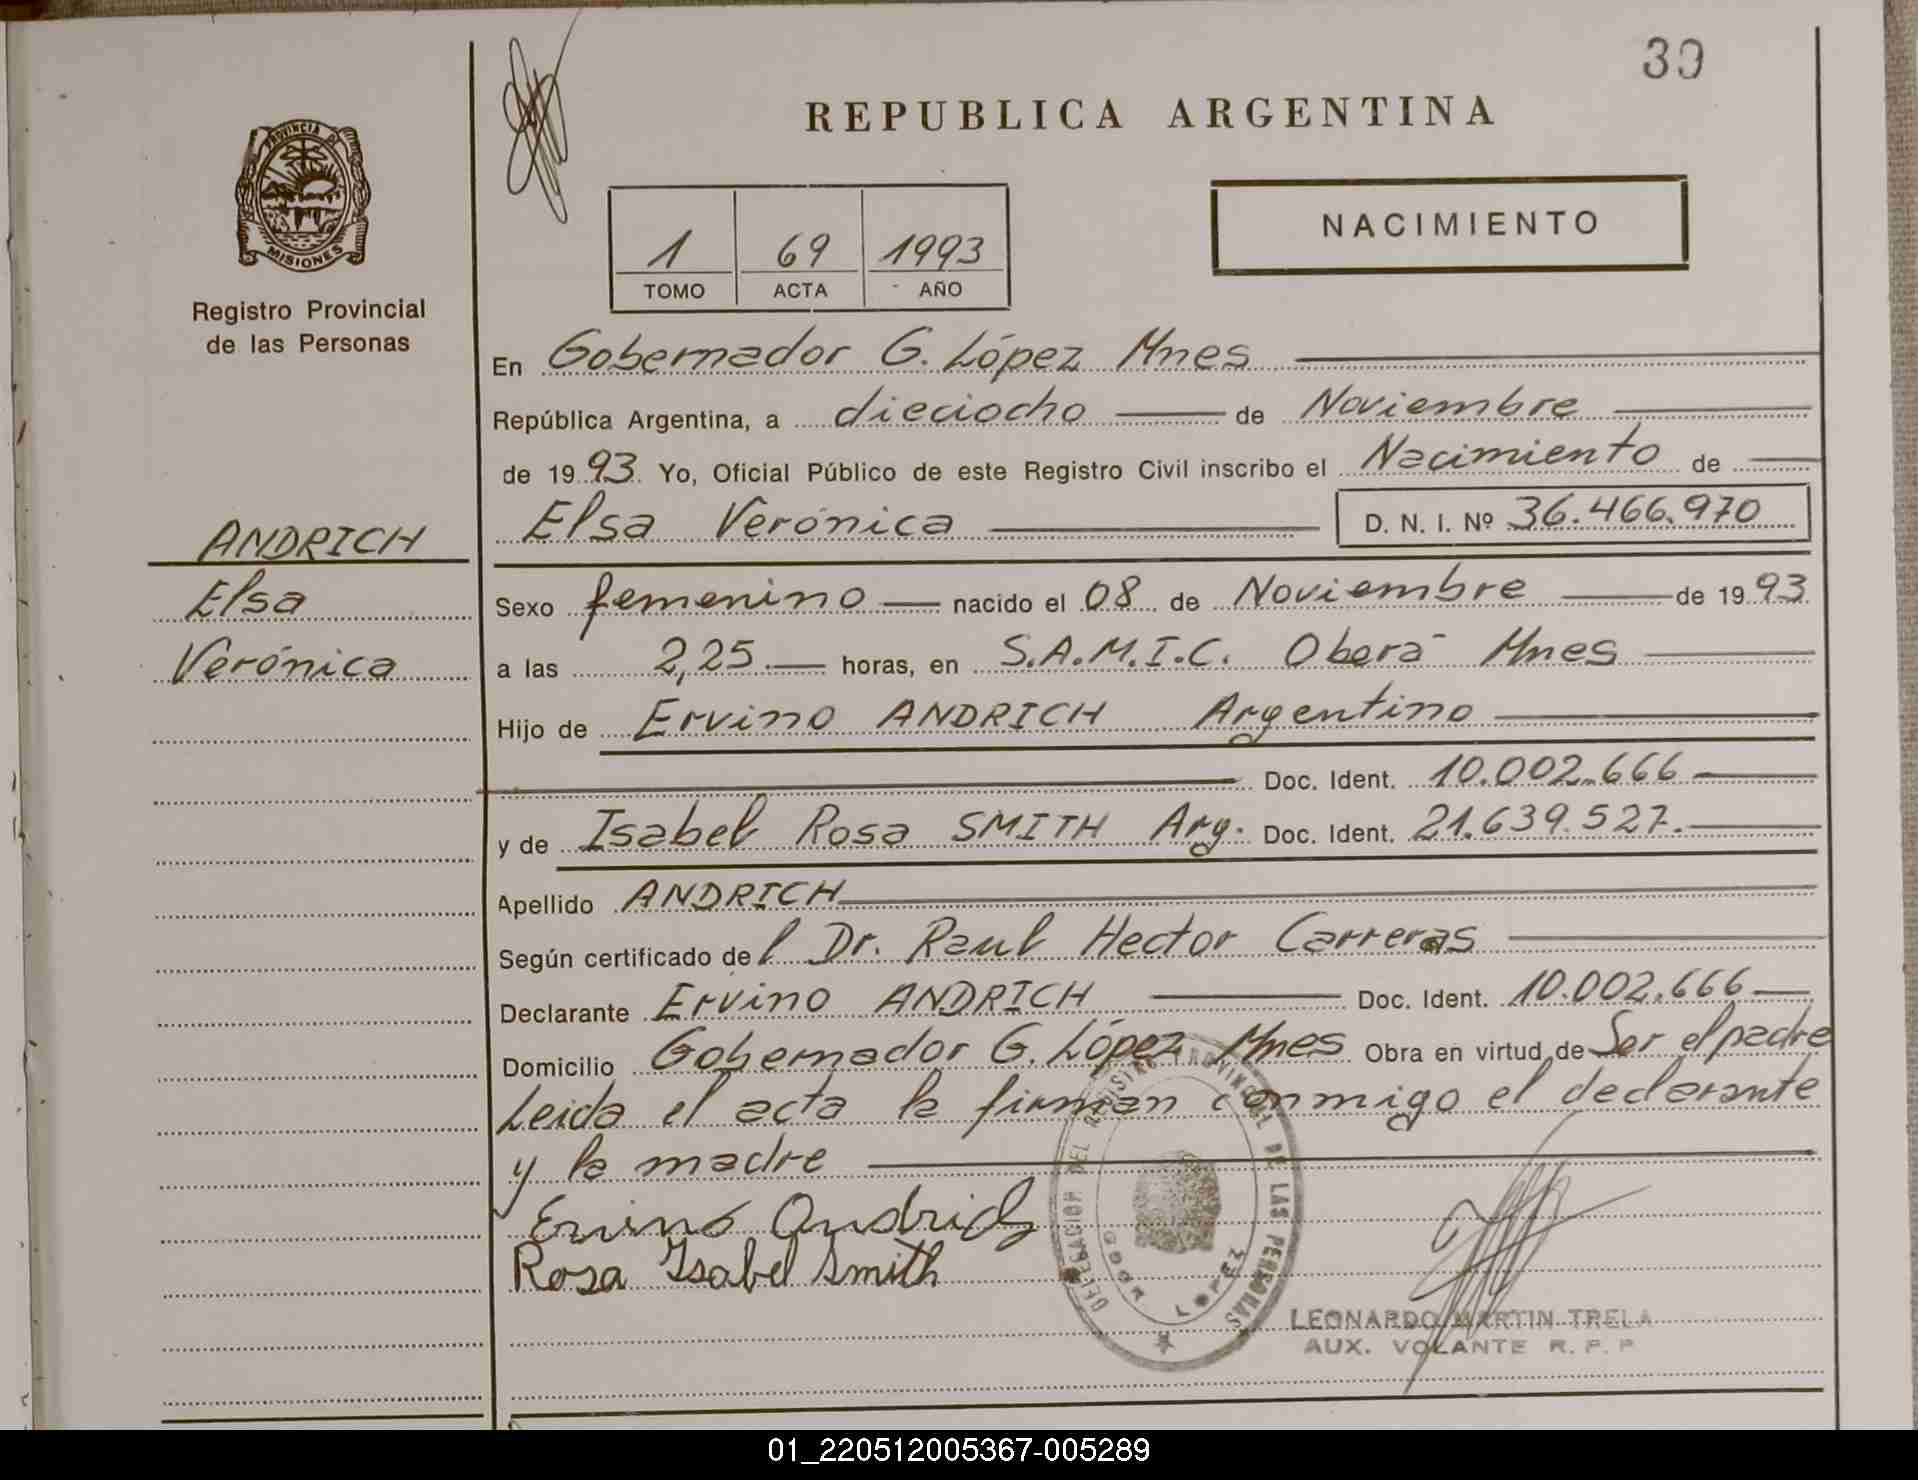 39
REPUBLICA ARGENTINA
PROVINCIA DE
MISIONES
Registro Provincial
de las Personas
1 69 1993
TOMO ACTA AÑO
NACIMIENTO
En Gobernador G. López Mnes
República Argentina, a dieciocho de Noviembre
de 1993 Yo, Oficial Público de este Registro Civil inscribo el Nacimiento de
Elsa Verónica D. N. I. Nº 36.466.970
ANDRICH
Elsa
Verónica
Sexo femenino nacido el 08 de Noviembre de 1993
a las 2,25 horas, en S.A.M.I.C. Oberá Mnes
Hijo de Ervino ANDRICH Argentino
Doc. Ident. 10.002.666
y de Isabel Rosa SMITH Arg. Doc. Ident. 21.639.527.
Apellido ANDRICH
Según certificado del Dr. Raul Hector Carreras
Declarante Ervino ANDRICH Doc. Ident. 10.002.666
Domicilio Gobernador G. López Mnes Obra en virtud de Ser el padre
Leida el acta la firman conmigo el declarante
y la madre
Ervino Andrich
Rosa Isabel Smith
DELEGACION DEL REGISTRO PROVINCIAL DE LAS PERSONAS
LEONARDO MARTIN TRELA
AUX. VOLANTE R. P. P
01_220512005367-005289